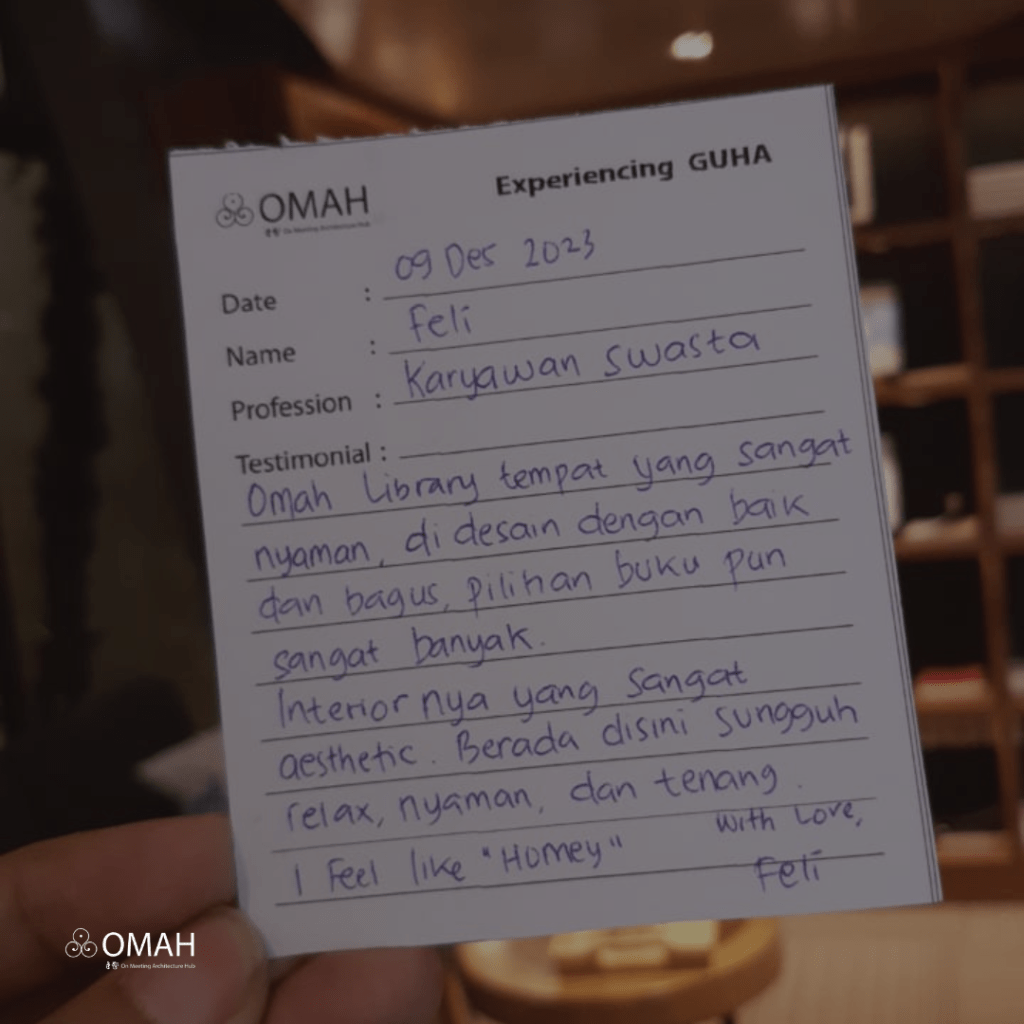 OMAH
On Meeting Architecture Hub
Experiencing GUHA
Date : 09 Des 2023
Name : Feli
Profession : Karyawan swasta
Testimonial :
Omah Library tempat yang sangat
nyaman, di desain dengan baik
dan bagus, pilihan buku pun
sangat banyak.
Interior nya yang sangat
aesthetic. Berada disini sungguh
relax, nyaman, dan tenang.
I Feel like "Homey"
With Love,
Feli
OMAH
On Meeting Architecture Hub